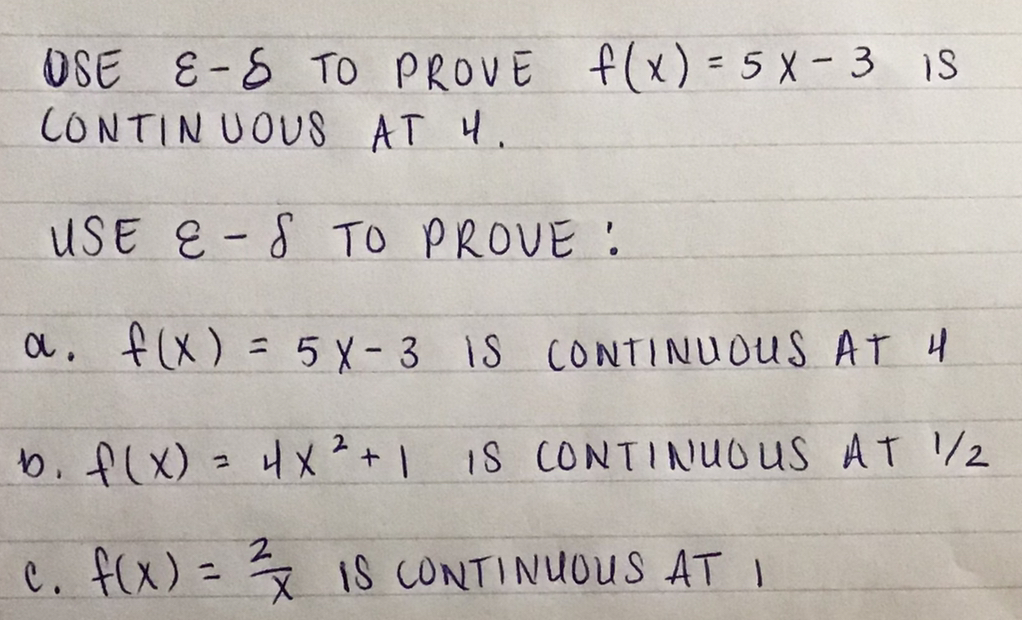 USE ε-δ TO PROVE f(x) = 5x - 3 IS
CONTINUOUS AT 4.
USE ε-δ TO PROVE :
a. f(x) = 5x - 3 IS CONTINUOUS AT 4
b. f(x) = 4x² + 1 IS CONTINUOUS AT 1/2
c. f(x) = 2/x IS CONTINUOUS AT 1